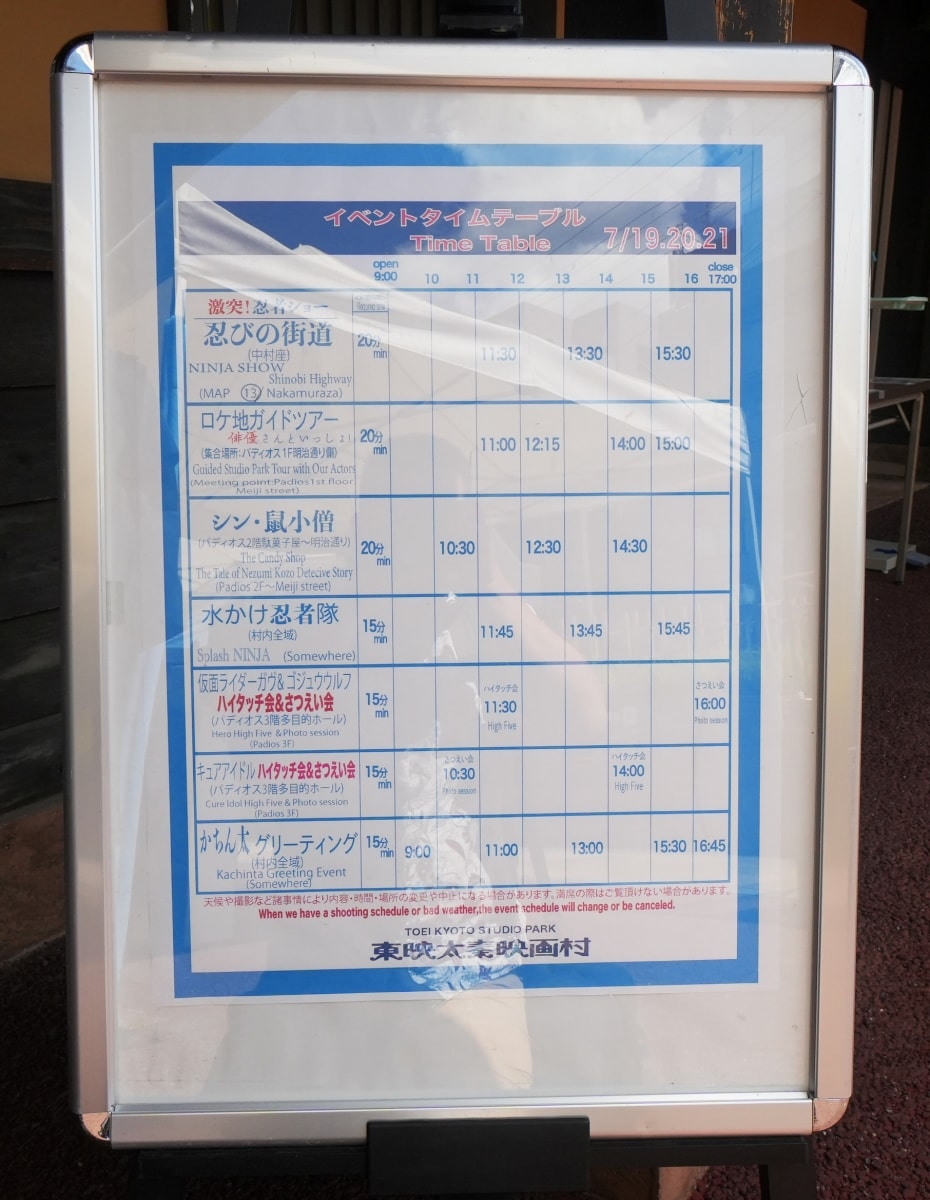 イベントタイムテーブル
Time Table 7/19.20.21
open close
9:00 10 11 12 13 14 15 16 17:00
激突!忍者ショー
忍びの街道
(中村座)
NINJA SHOW
Shinobi Highway
(MAP 13/ Nakamuraza)
20分
min
11:30 13:30 15:30
ロケ地ガイドツアー
俳優さんといっしょ!
(集合場所:パディオス1F明治通り側)
Guided Studio Park Tour with Our Actors
(Meeting point:Padios1st floor
Meiji street)
20分
min
11:00 12:15 14:00 15:00
シン・鼠小僧
(パディオス2階駄菓子屋〜明治通り)
The Candy Shop
The Tale of Nezumi Kozo Detecive Story
(Padios 2F〜Meiji street)
20分
min
10:30 12:30 14:30
水かけ忍者隊
(村内全域)
Splash NINJA (Somewhere)
15分
min
11:45 13:45 15:45
仮面ライダーガヴ&ゴジュウウルフ
ハイタッチ会&さつえい会
(パディオス3階多目的ホール)
Hero High Five & Photo session
(Padios 3F)
15分
min
ハイタッチ会
11:30
High Five
さつえい会
16:00
Photo session
キュアアイドル ハイタッチ会&さつえい会
(パディオス3階多目的ホール)
Cure Idol High Five & Photo session
(Padios 3F)
15分
min
さつえい会
10:30
Photo session
ハイタッチ会
14:00
High Five
かちん太 グリーティング
(村内全域)
Kachinta Greeting Event
(Somewhere)
15分
min
9:00 11:00 13:00 15:30 16:45
天候や撮影など諸事情により内容・時間・場所の変更や中止になる場合があります。満席の際はご覧頂けない場合があります。
When we have a shooting schedule or bad weather,the event schedule will change or be canceled.
TOEI KYOTO STUDIO PARK
東映太秦映画村